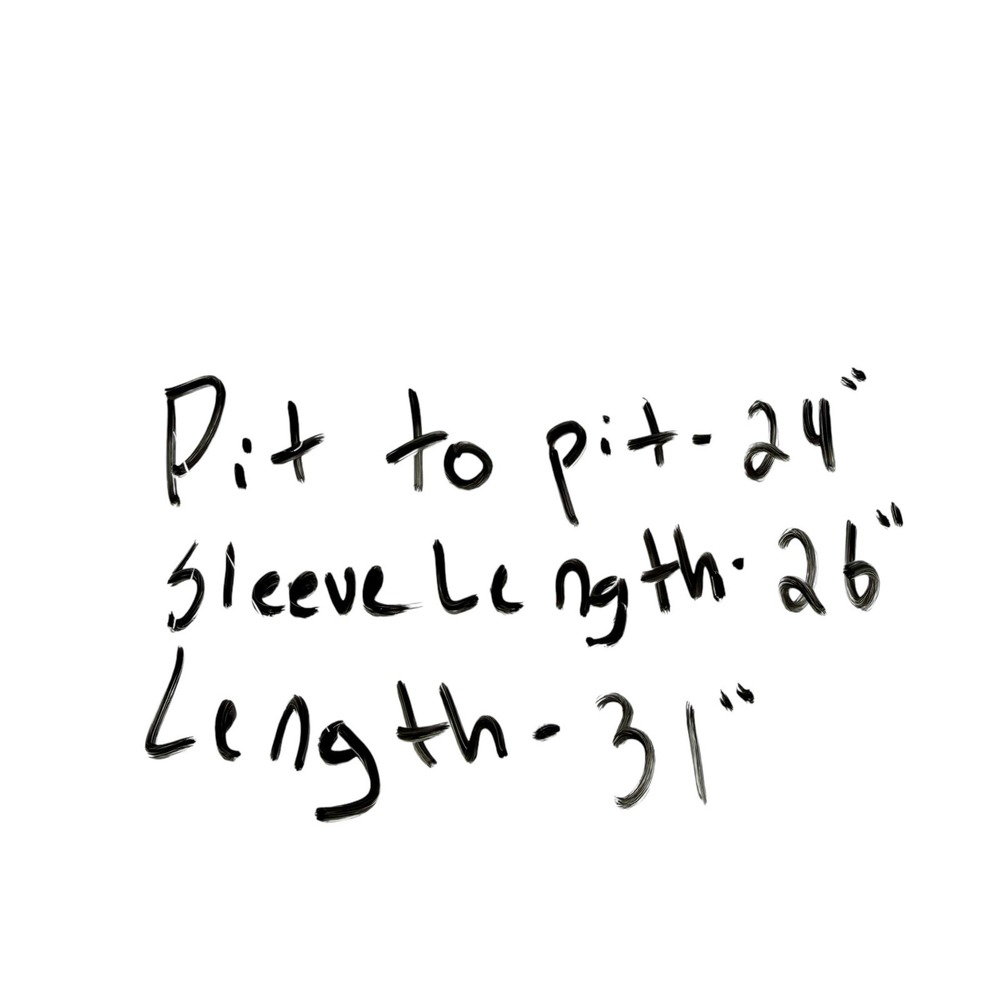 Pit to pit - 24"
Sleeve Length - 26"
Length - 31"